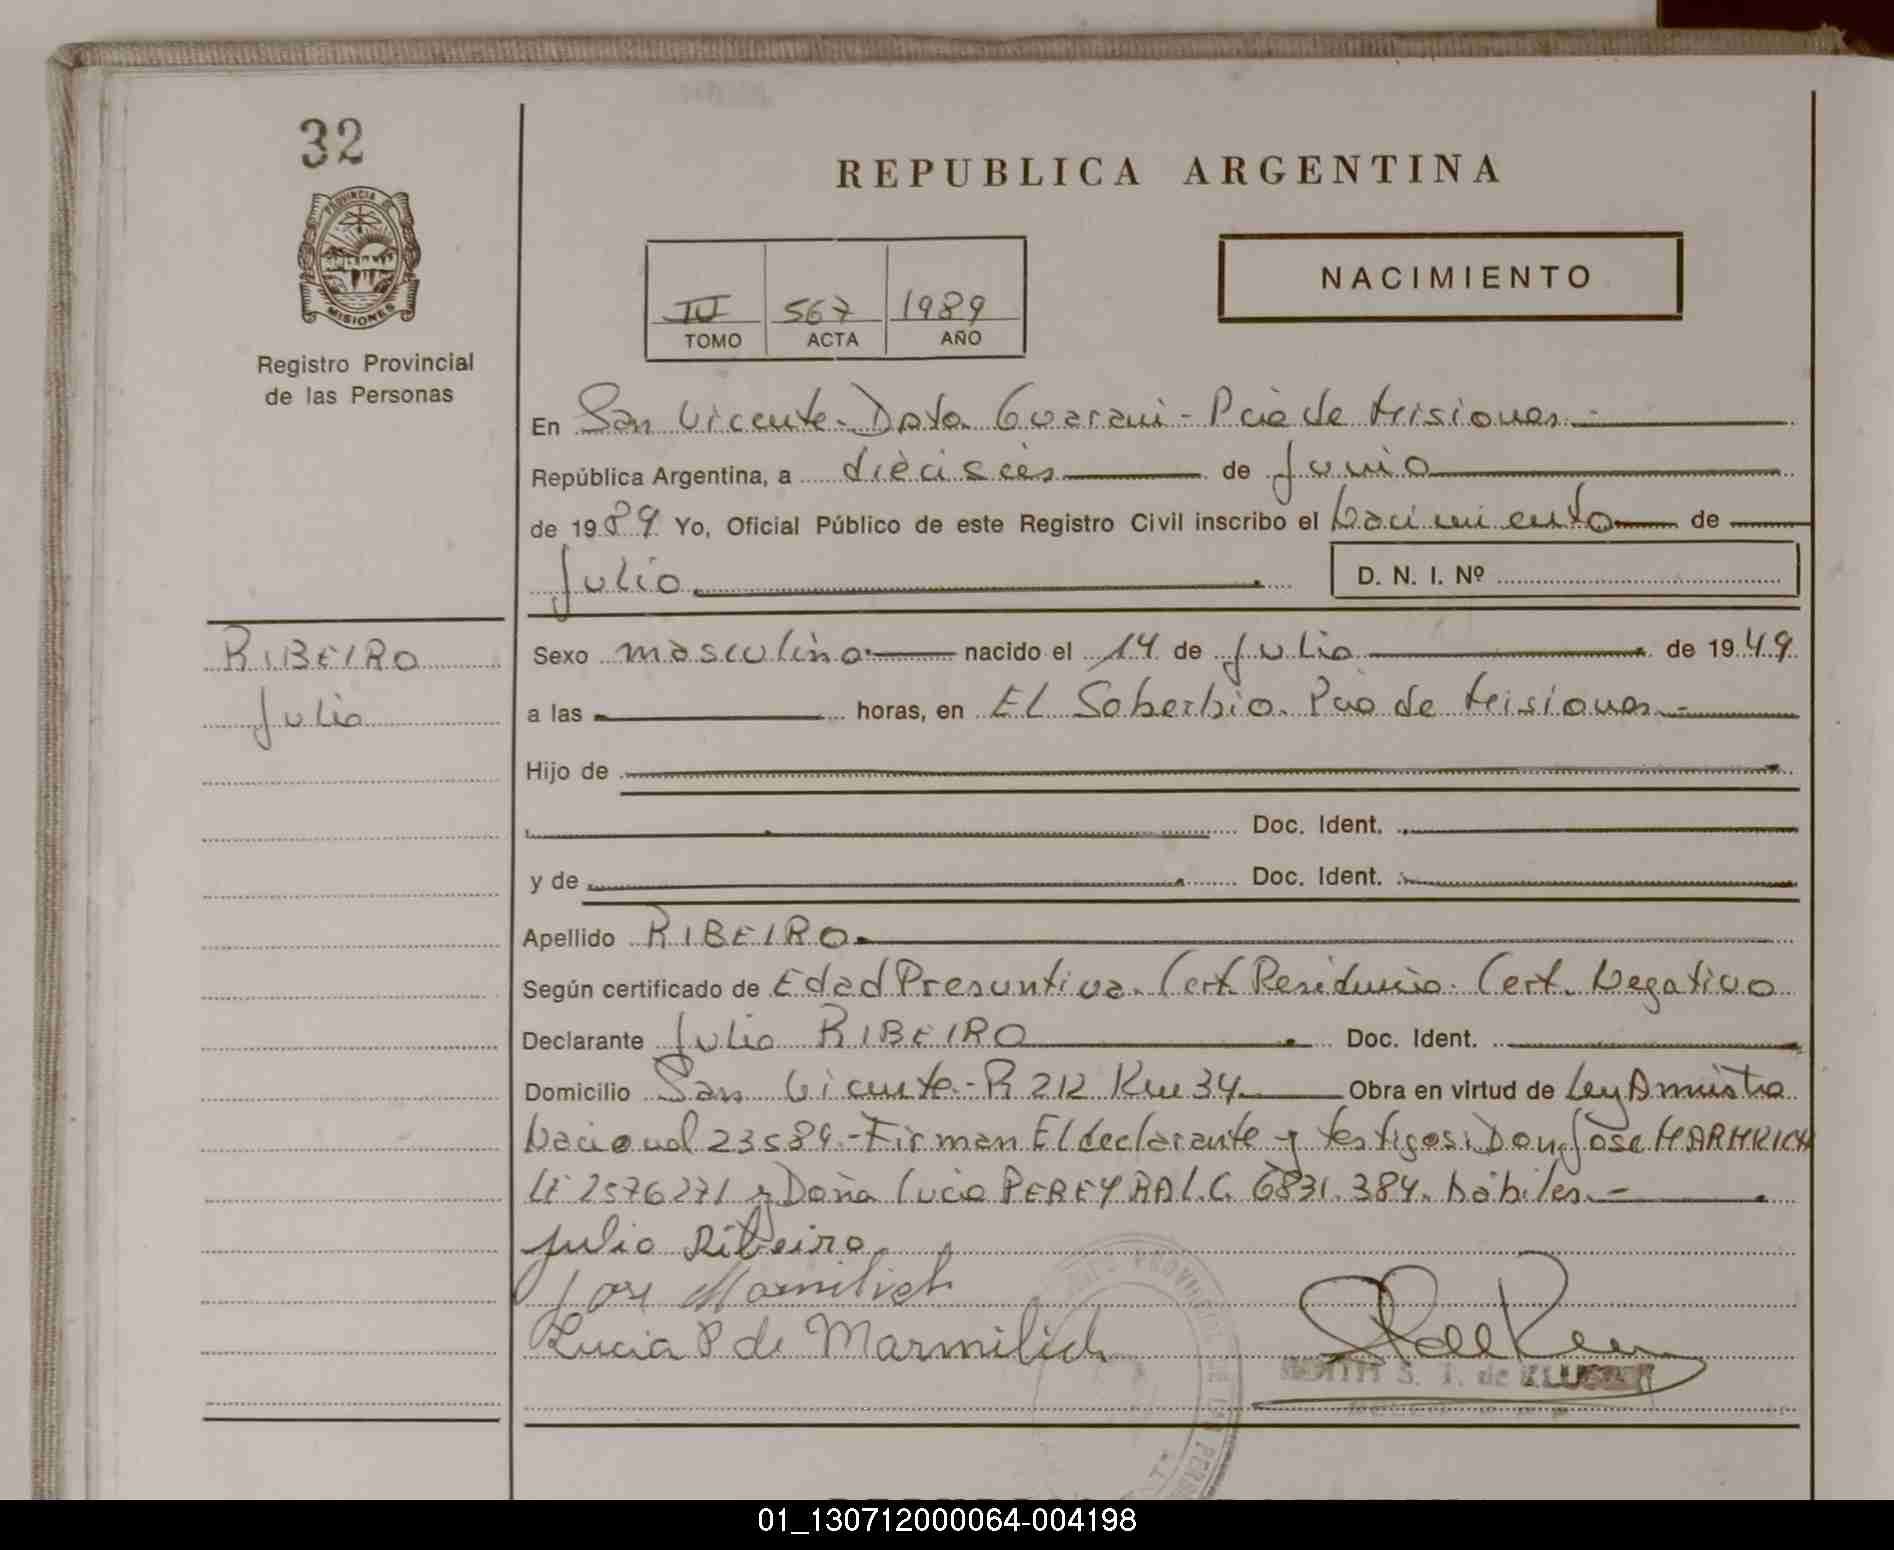 32
PROVINCIA DE
MISIONES
Registro Provincial
de las Personas
REPUBLICA ARGENTINA
NACIMIENTO
IV 567 1989
TOMO ACTA AÑO
En San Vicente - Dpto. Guarani - Pcia de Misiones.-
República Argentina, a dieciseis de Junio
de 1989 Yo, Oficial Público de este Registro Civil inscribo el Nacimiento de
Julio D. N. I. Nº
RIBEIRO
Julio
Sexo masculino.- nacido el 14 de Julio de 1949
a las horas, en EL Soberbio. Pcia de Misiones.-
Hijo de
Doc. Ident.
y de Doc. Ident.
Apellido RIBEIRO.
Según certificado de Edad Presuntiva. Cert. Residencia. Cert. Negativo
Declarante Julio RIBEIRO Doc. Ident.
Domicilio San Vicente - R 212 Km 34 Obra en virtud de Ley Amnistia
Nacional 23589.- Firman El declarante y testigos: Don Jose
LE 2576271 y Doña Lucia PEREYRA L.C. 6831.384. hábiles.-
Julio Ribeiro
Jose Marmilich
Lucia P de Marmilich
S. I. de
01_130712000064-004198